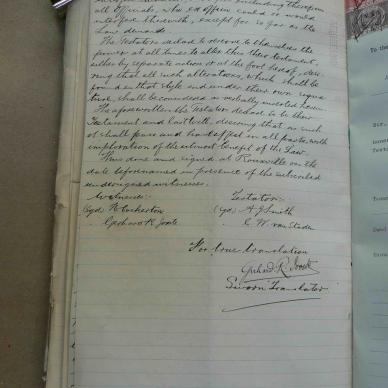 all Officials, who ex officio could or would
interfere therewith, except for so far as the
Law demands.
The Testators declared to reserve to themselves the
power at all times to alter this their testament,
either by separate action or at the foot hereof, desi-
ring that all such alterations, which shall be
found in that style and under their own signa-
ture, shall be considered as verbally inserted herein.
The aforewritten the Testators declared to be their
Testament and Last Will, desiring that as such
it shall pass and have effect in all parts, with
imploration of the utmost benefit of the Law.
Thus done and signed at Rouxville on the
date beforenamed in presence of the subscribed
undersigned witnesses.
Witnesses:- Testators:-
(sgd) (sgd) A J Smith
Gerhard R. Joubt C. W. van Staden
For true translation
Gerhard R. Joubt
Sworn Translator
To the